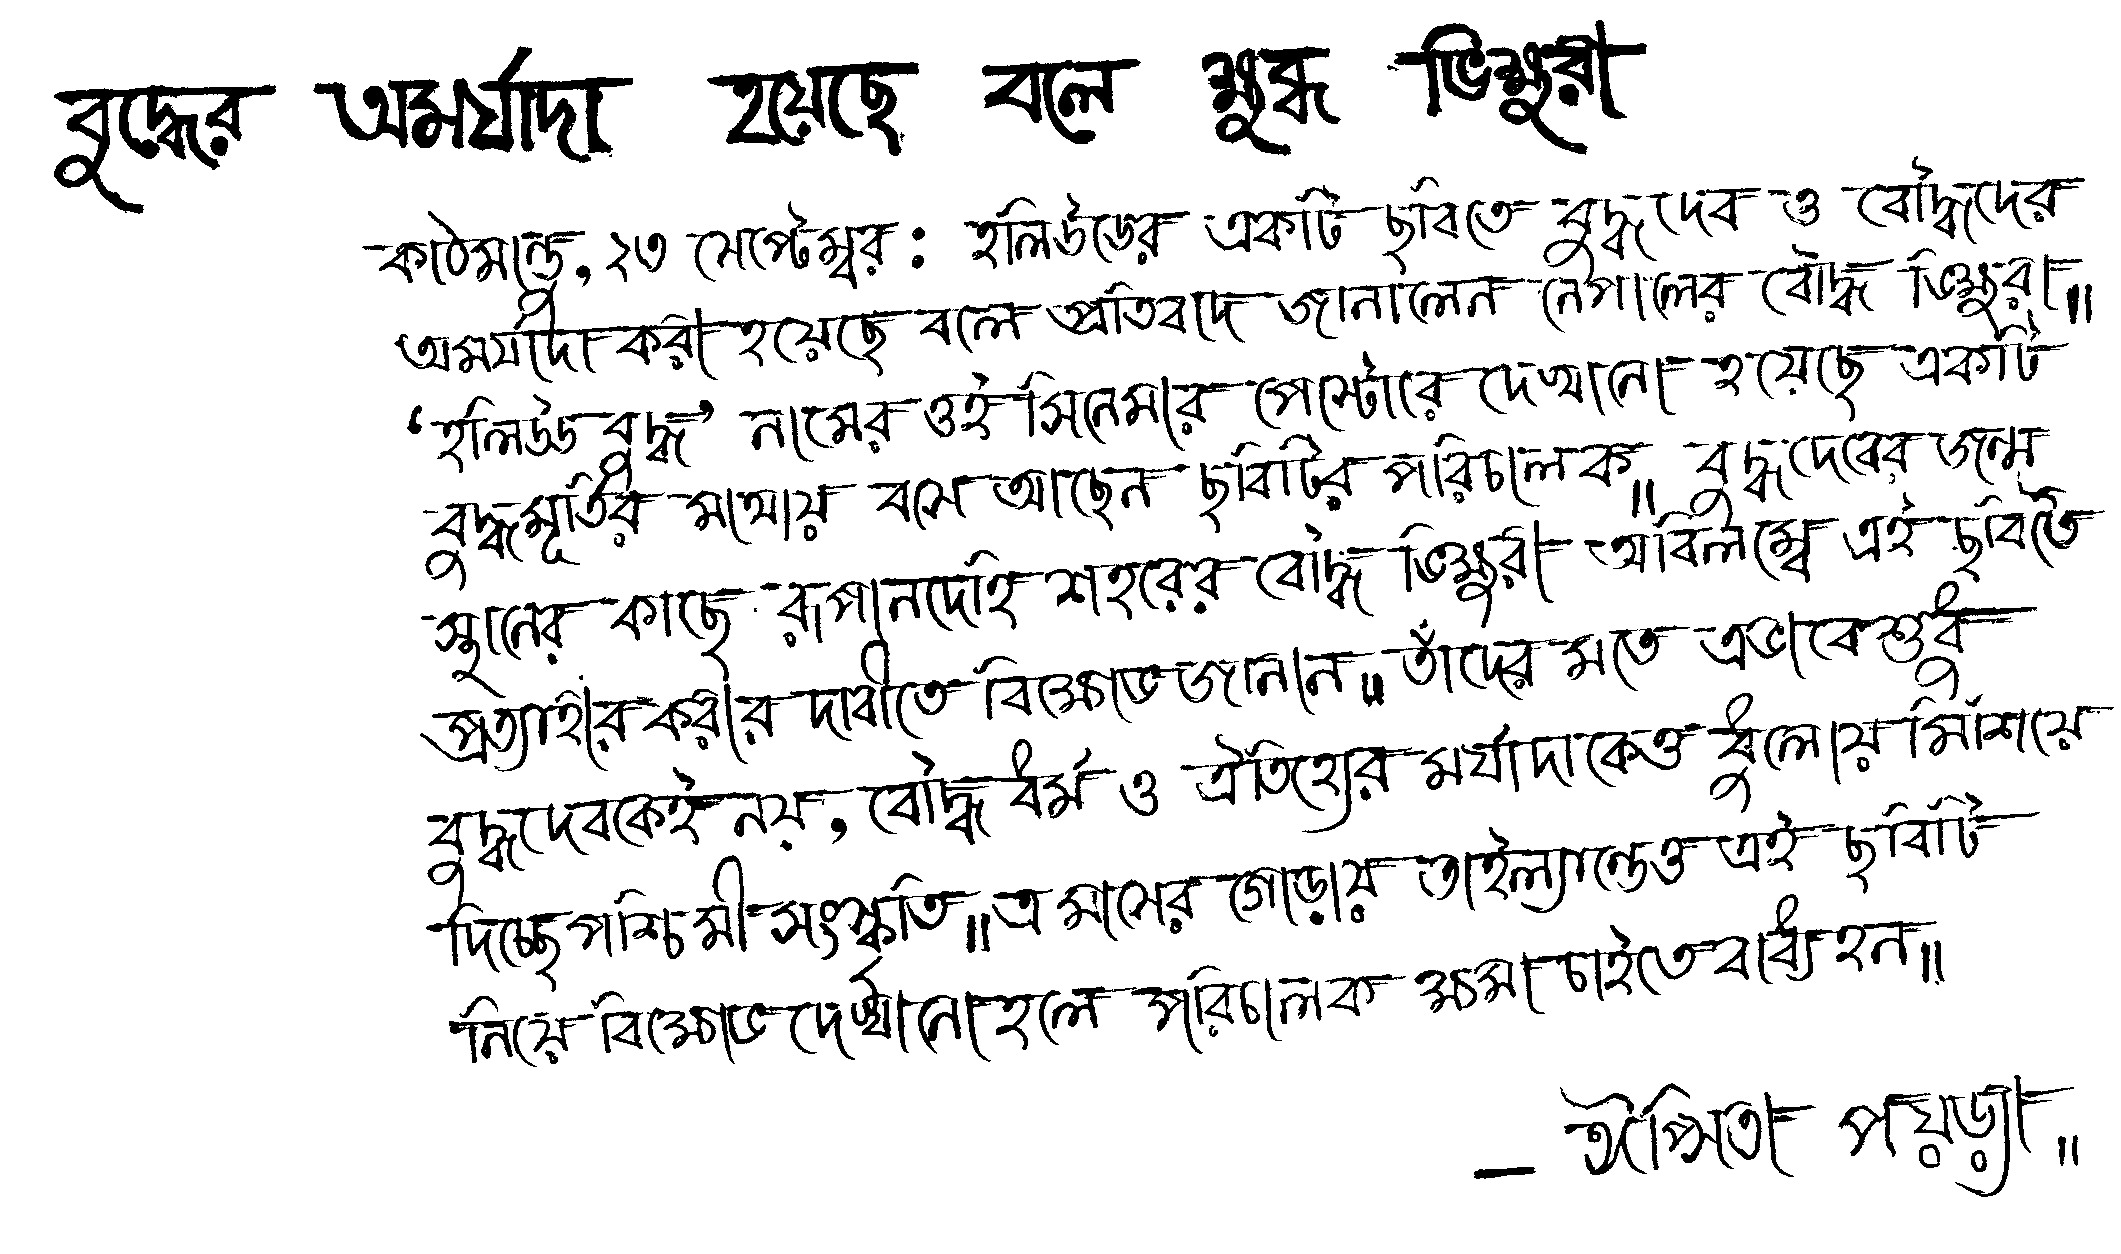 বুদ্ধের অমর্যাদা হয়েছে বলে ক্ষুব্ধ ভিক্ষুরা
কাঠমান্ডু, ২৩ সেপ্টেম্বর : হলিউডের একটি ছবিতে বুদ্ধদেব ও বৌদ্ধদের
অমর্যাদা করা হয়েছে বলে প্রতিবাদ জানালেন নেপালের বৌদ্ধ ভিক্ষুরা॥
‘হলিউড বুদ্ধ’ নামের ওই সিনেমার পোস্টারে দেখানো হয়েছে একটি
বুদ্ধমূর্তির মাথায় বসে আছেন ছবিটির পরিচালক॥ বুদ্ধদেবের জন্ম
স্থানের কাছে রূপানদেহি শহরের বৌদ্ধ ভিক্ষুরা অবিলম্বে এই ছবিটি
প্রত্যাহার করার দাবীতে বিক্ষোভ জানান॥ তাঁদের মতে এভাবে শুধু
বুদ্ধদেবকেই নয়, বৌদ্ধ ধর্ম ও ঐতিহ্যের মর্যাদাকেও ধুলোয় মিশিয়ে
দিচ্ছে পশ্চিমী সংস্কৃতি॥ এ মাসের গোড়ায় তাইল্যান্ডেও এই ছবিটি
নিয়ে বিক্ষোভ দেখানো হলে পরিচালক ক্ষমা চাইতে বাধ্য হন॥
— ঈপ্সিতা পয়ড়্যা॥